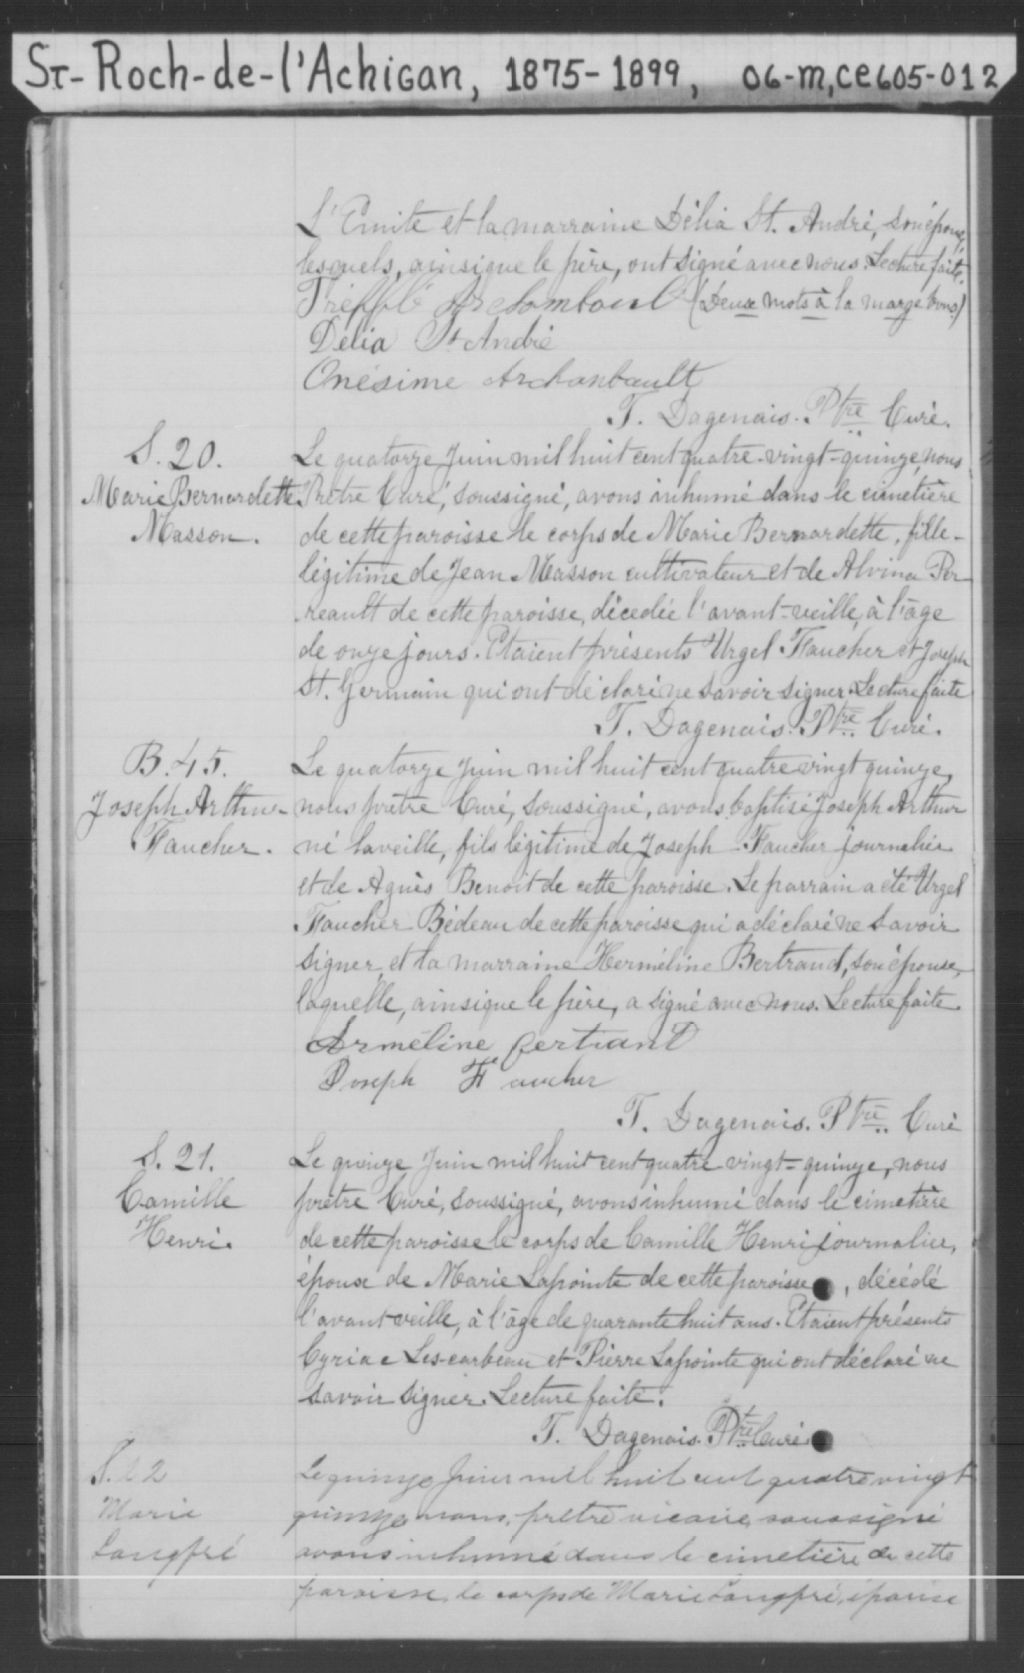 St-Roch-de-l'Achigan, 1875-1899, 06-M, CE605-012
L'Emite et la marraine Délia St. André, son épouse,
lesquels, ainsi que le père, ont signé avec nous. Lecture faite.
Trefflé Archambault (Deux mots à la marge bons)
Délia St André
Onésime Archambault
T. Dagenais. Ptre Curé.
S. 20.
Marie Bernardette
Masson.
Le quatorze Juin mil huit cent quatre-vingt-quinze, nous
Prêtre Curé, soussigné, avons inhumé dans le cimetière
de cette paroisse le corps de Marie Bernardette, fille-
légitime de Jean Masson cultivateur et de Alvina Per-
reault de cette paroisse, décedée l'avant-veille, à l'âge
de onze jours. Etaient présents Urgel Faucher et Joseph
St. Germain qui ont déclaré ne savoir signer. Lecture faite
T. Dagenais. Ptre Curé.
B. 45.
Joseph Arthur
Faucher.
Le quatorze Juin mil huit cent quatre vingt quinze,
nous prêtre Curé, soussigné, avons baptisé Joseph Arthur
né la veille, fils légitime de Joseph Faucher journalier
et de Agnès Benoit de cette paroisse. Le parrain a été Urgel
Faucher Bédeau de cette paroisse qui a déclaré ne savoir
signer et la marraine Herméline Bertrand, son épouse,
laquelle, ainsi que le père, a signé avec nous. Lecture faite.
Arméline Bertrand
Joseph Faucher
T. Dagenais. Ptre Curé
S. 21.
Camille
Henri.
Le quinze Juin mil huit cent quatre vingt-quinze, nous
prêtre Curé, soussigné, avons inhumé dans le cimetière
de cette paroisse le corps de Camille Henri journalier,
époux de Marie Lapointe de cette paroisse, décédé
l'avant veille, à l'âge de quarante huit ans. Etaient présents
Cyriac Lescarbeau et Pierre Lapointe qui ont déclaré ne
savoir signer. Lecture faite.
T. Dagenais. Ptre Curé
S. 22
Marie
Langfré
Le quinze Juin mil huit cent quatre vingt
quinze nous, prêtre vicaire soussigné
avons inhumé dans le cimetière de cette
paroisse, le corps de Marie Langfré, épouse